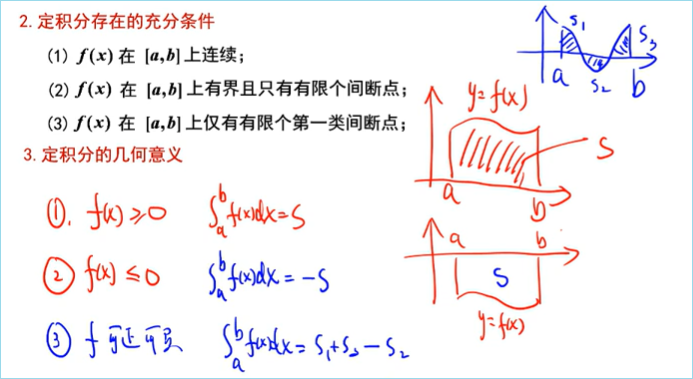 2. 定积分存在的充分条件
(1) f(x) 在 [a,b] 上连续；
(2) f(x) 在 [a,b] 上有界且只有有限个间断点；
(3) f(x) 在 [a,b] 上仅有有限个第一类间断点；
3. 定积分的几何意义
①. f(x)≥0 ∫_a^b f(x)dx=S
② f(x)≤0 ∫_a^b f(x)dx=-S
③ f 可正可负 ∫_a^b f(x)dx=S₁+S₃-S₂
S₁
S₃
a S₂ b
y=f(x)
S
a b
a b
S
y=f(x)